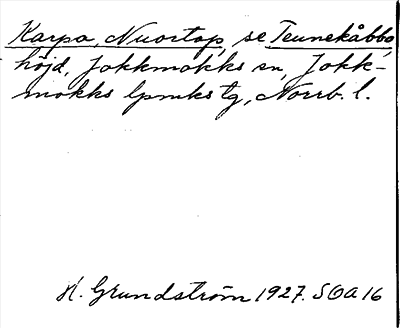 Karpa, Nuortap, se Teunekåbbo
höjd, Jokkmokks sn, Jokk-
mokks lpmks tg, Norrb. l.
H. Grundström 1927. SOA 16